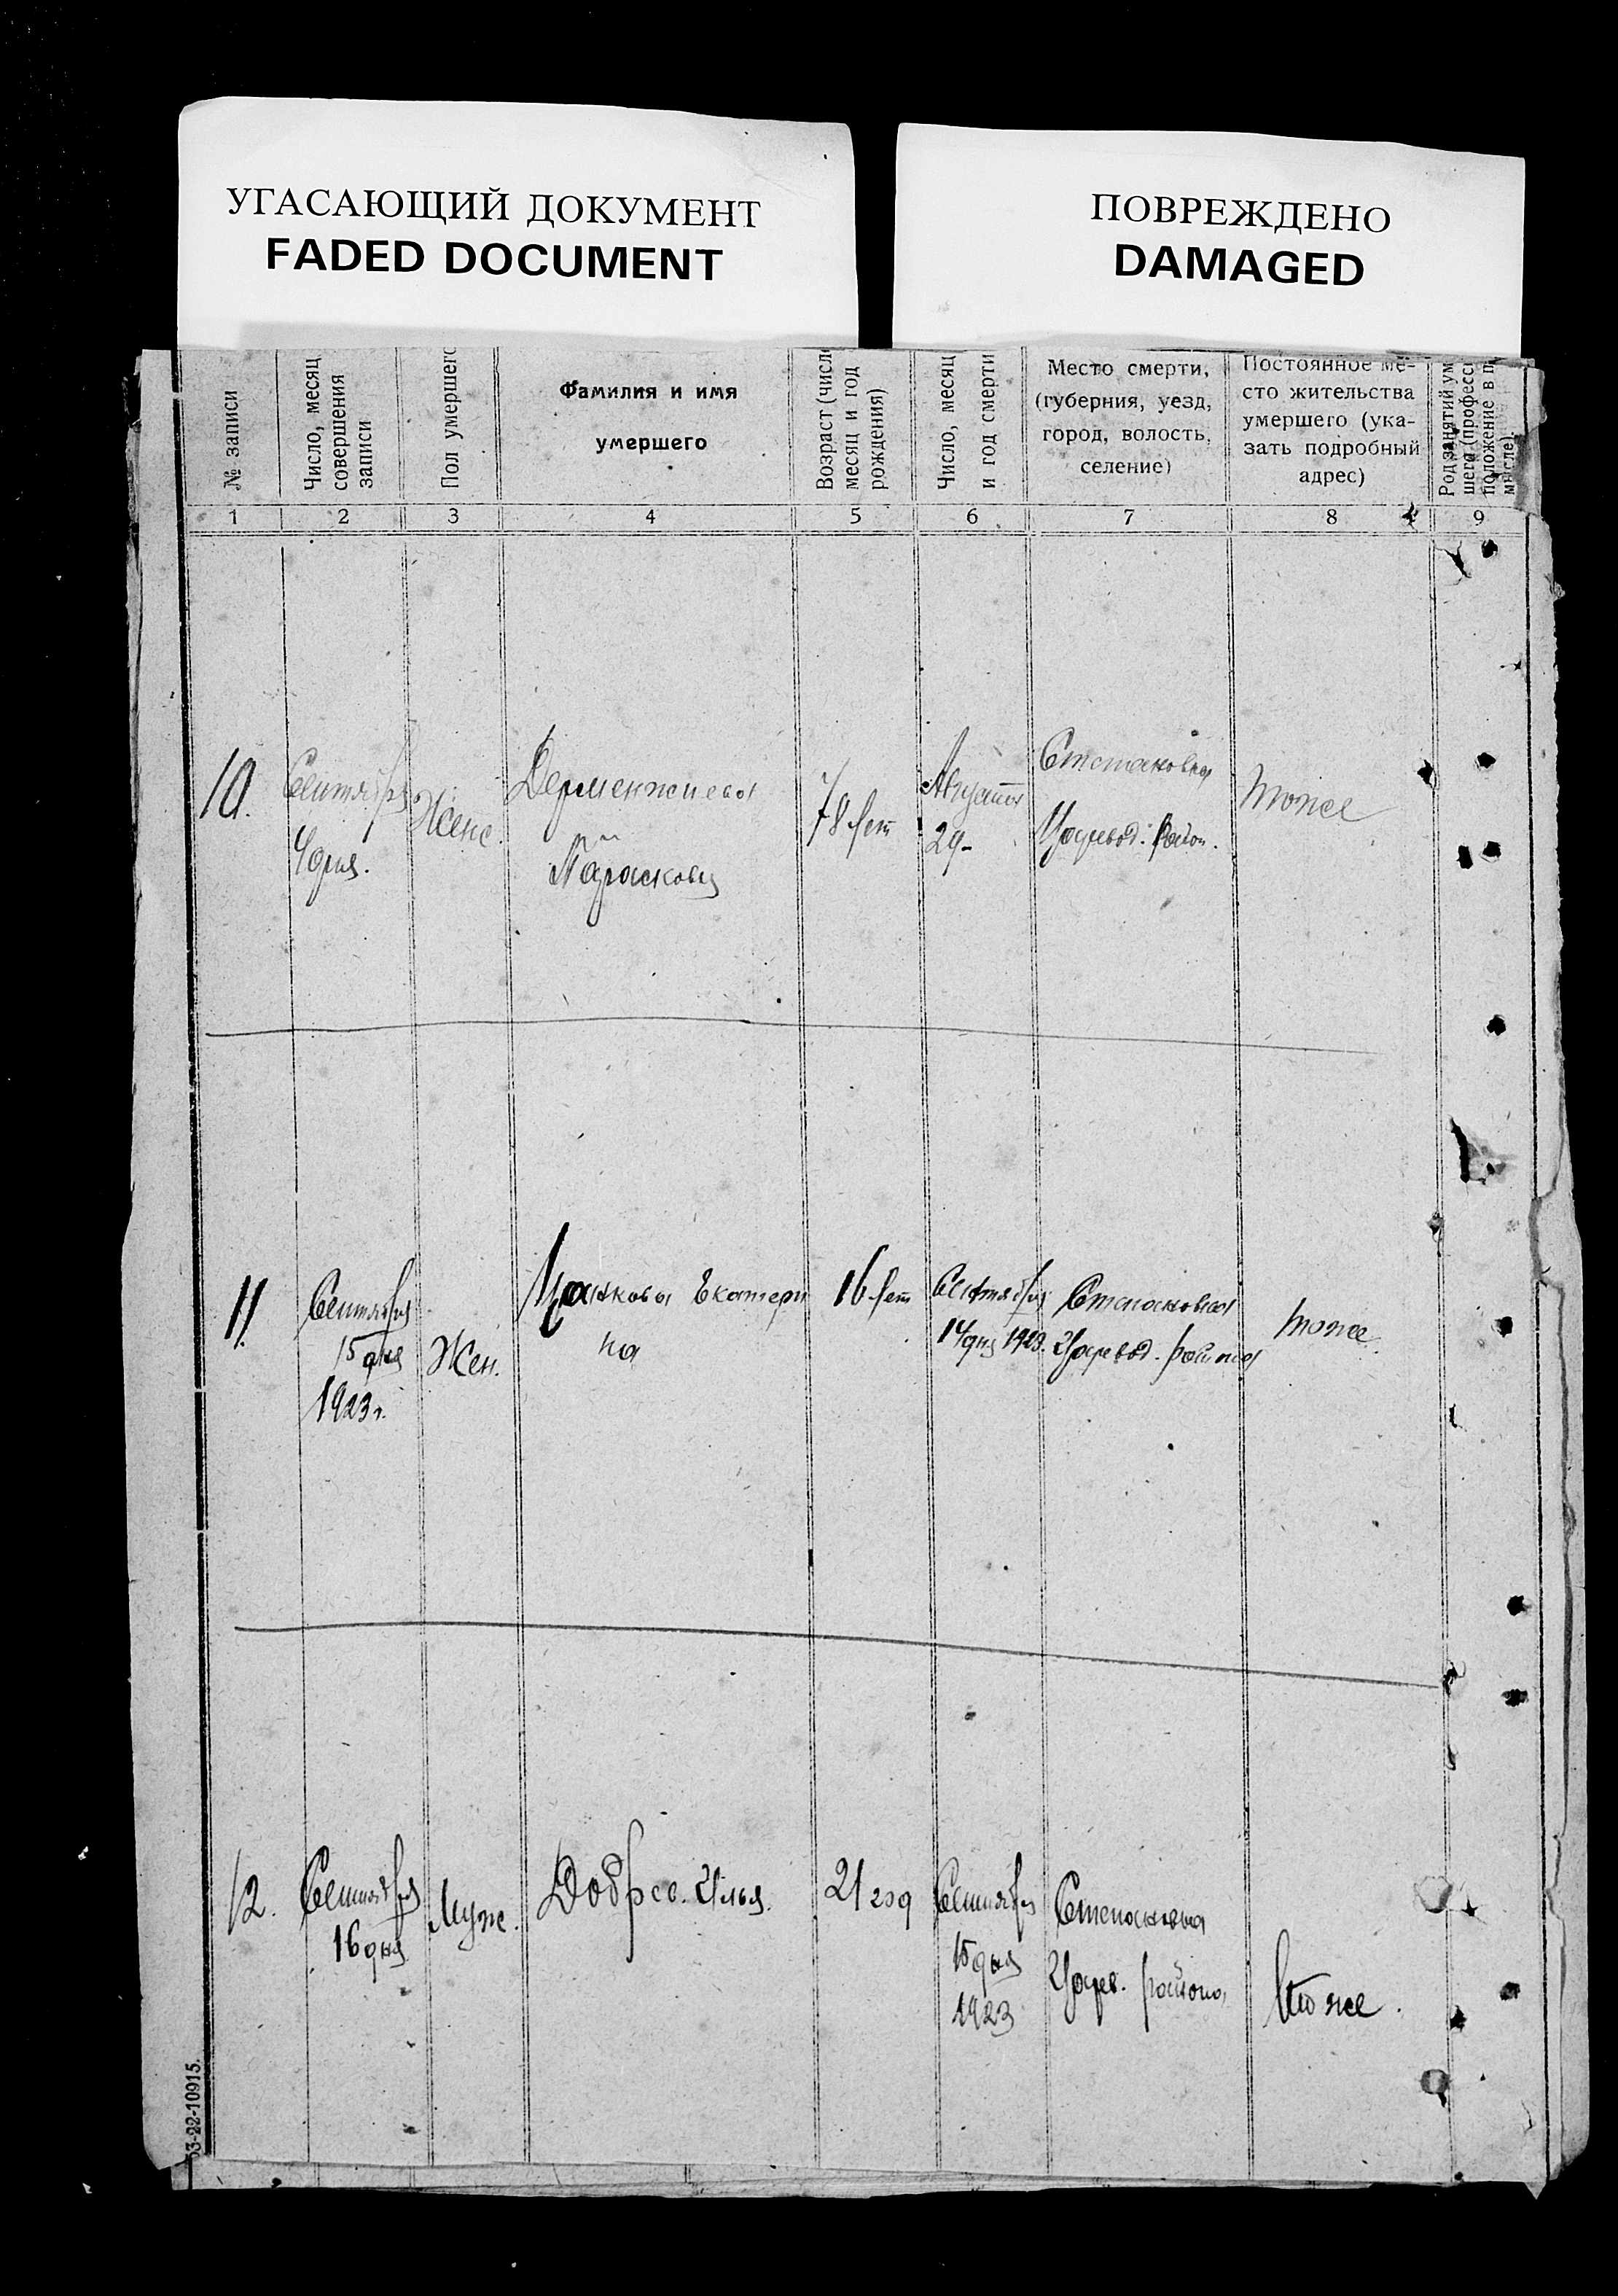 УГАСАЮЩИЙ ДОКУМЕНТ
FADED DOCUMENT
ПОВРЕЖДЕНО
DAMAGED
№ записи
Число, месяц
совершения
записи
Пол умершего
Фамилия и имя
умершего
Возраст (число
месяц и год
рождения)
Число, месяц
и год смерти
Место смерти,
(губерния, уезд,
город, волость,
селение)
Постоянное ме-
сто жительства
умершего (ука-
зать подробный
адрес)
Род занятий ум
шего (професс
положение в п
мысле).
1 2 3 4 5 6 7 8 9
10.
Сентября
4 дня.
Женс.
Дерменжиева
Парасковья
78 лет
Августа
29-
Степановка
Царевод. район.
тоже
11.
Сентября
15 дня
1923 г.
Жен.
Цанкова Екатери
на
16 лет
Сентября
14 дня 1923.
Степановка
Царевод. района
тоже
12.
Сентября
16 дня
Муж.
Добрев. Илья.
21 год
Сентября
15 дня
1923
Степановка
Царев. района,
тоже.
53-22-10915.